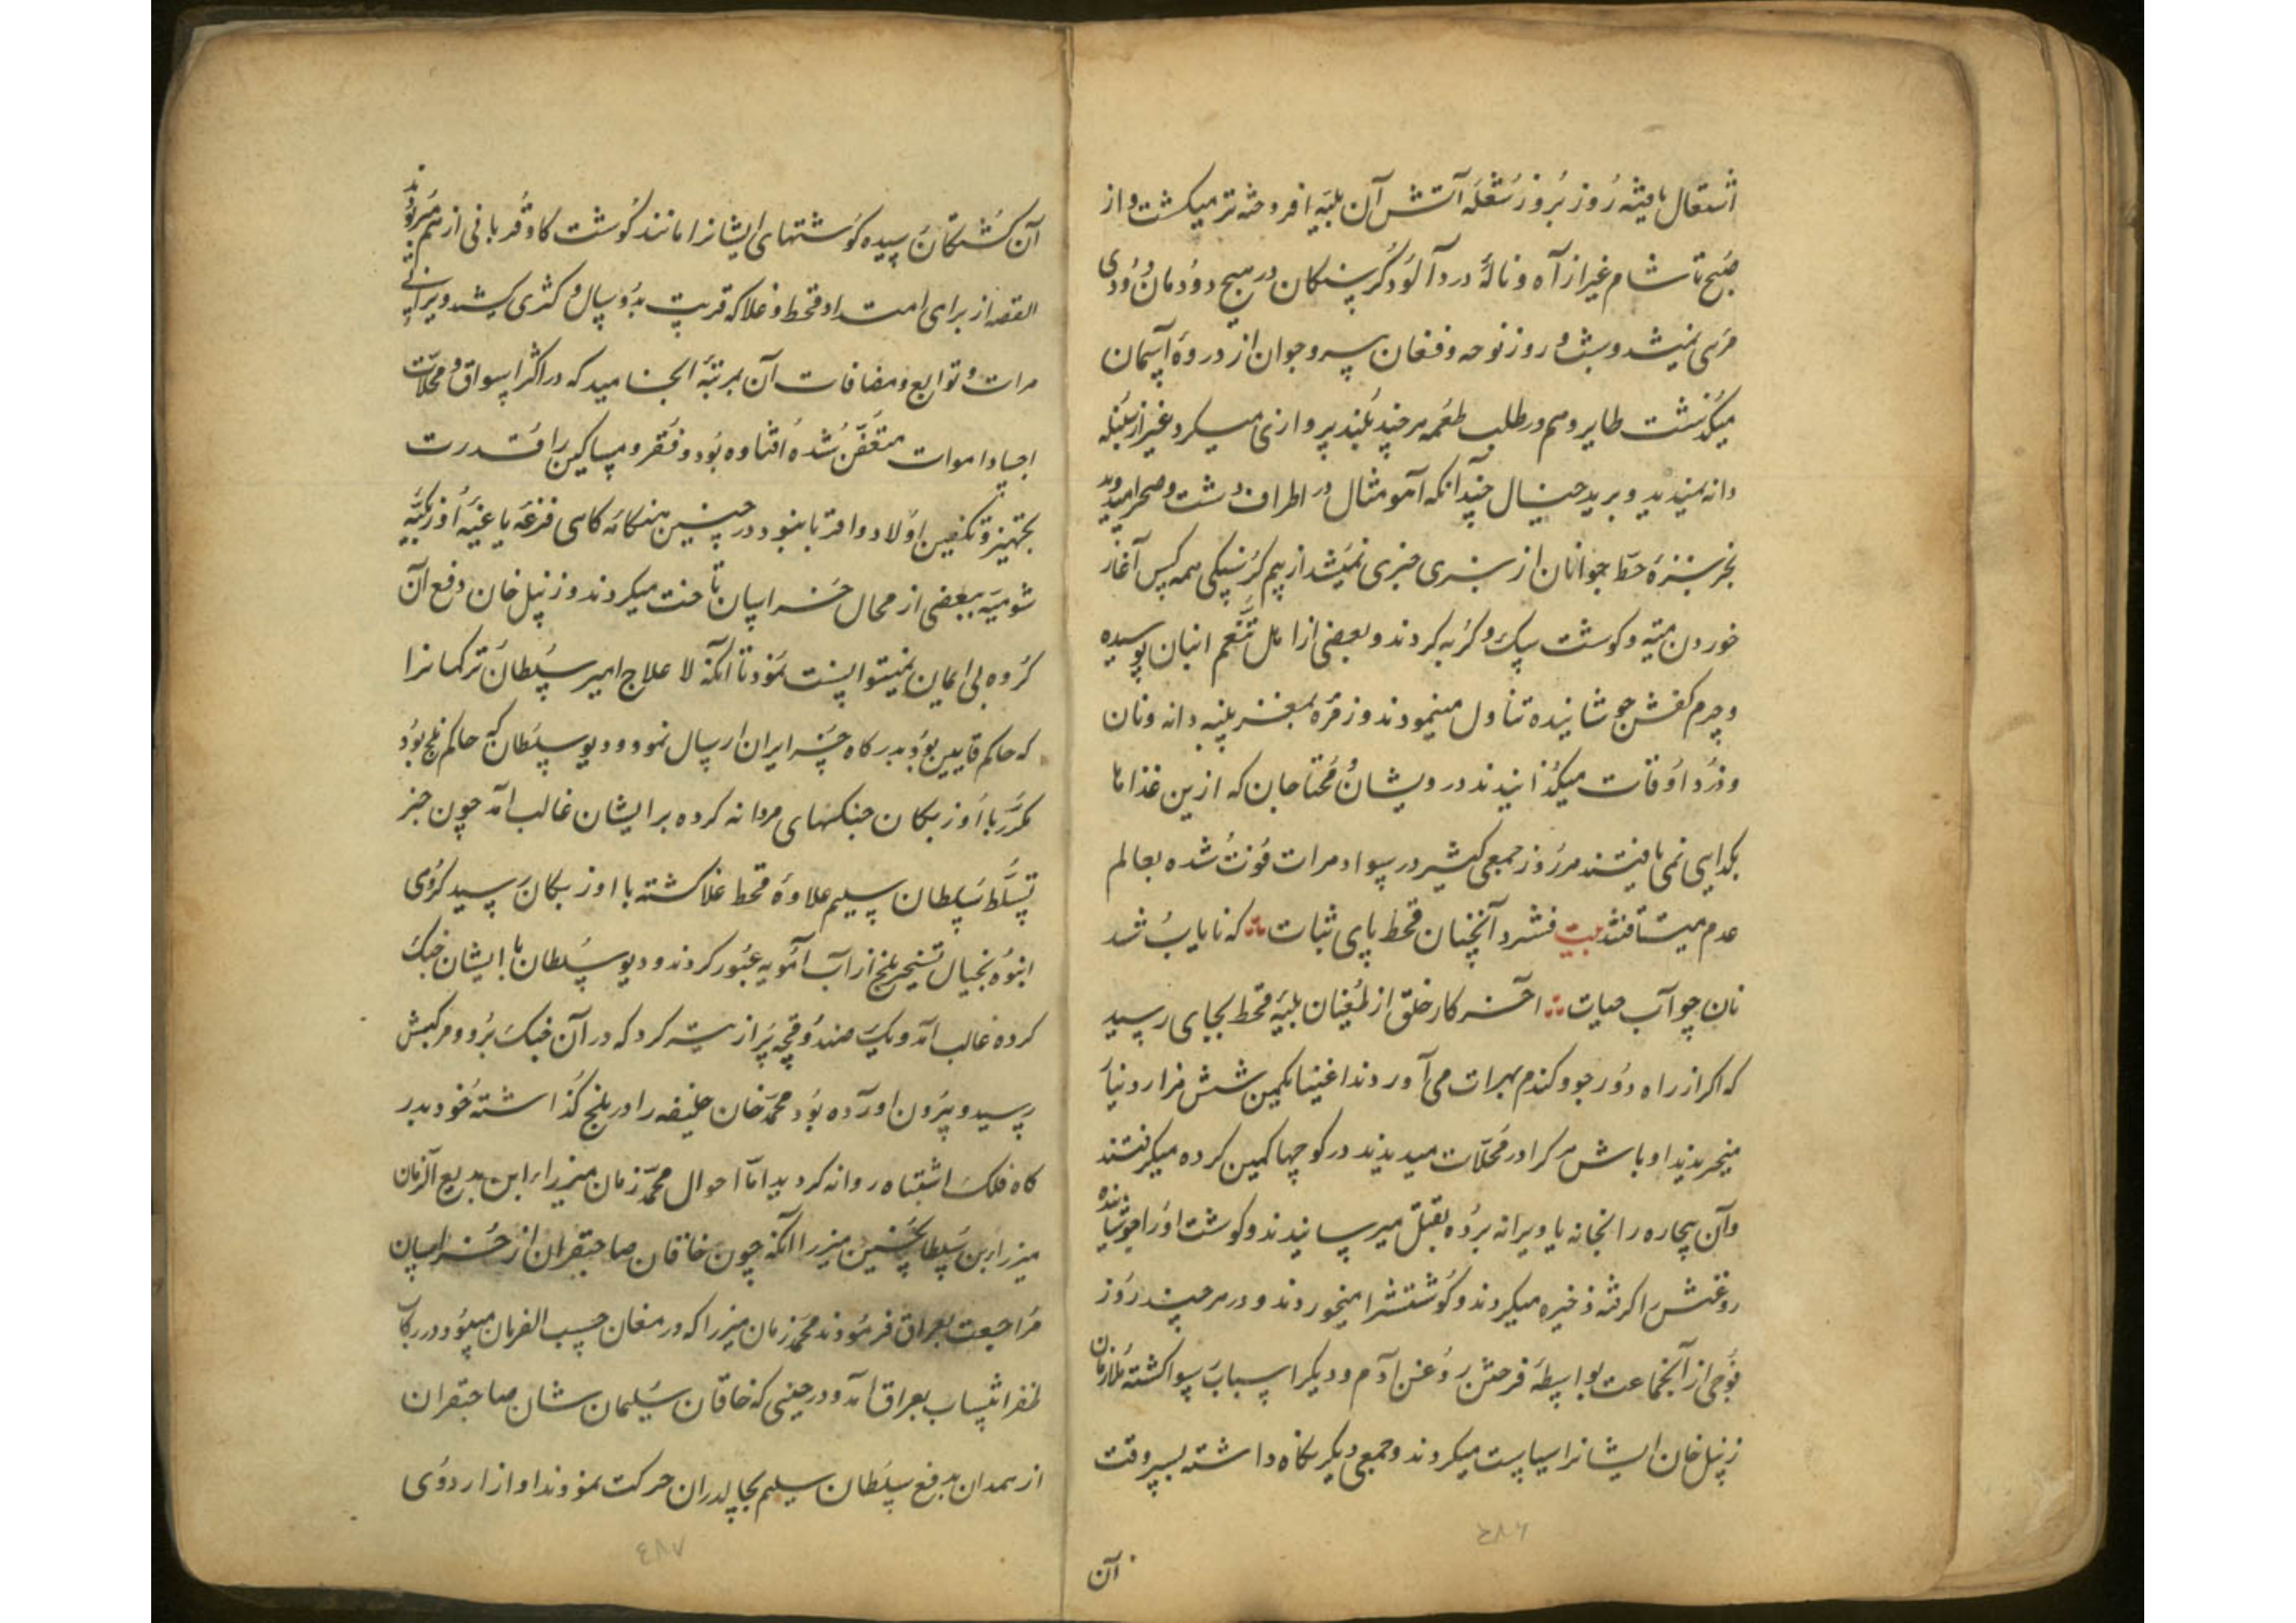 اشتعال یافته روز بروز شعله آتش آن بلیه افروخته تر میکشت و از
صبح تا شام غیر از آه و نالهٔ درد آلود کرسنکان در هیچ دودمان دودی
مرئی نمیشد و شب و روز نوحه و فغان پیر و جوان از ذروهٔ آسمان
میکذشت طایر وهم در طلب طعمه هر چند بلند پروازی میکرد غیر از سنبله
دانه نمیدید و برید خیال چندانکه آهو مثال در اطراف دشت و صحرا میدوید
بجز سبزهٔ خط جوانان از سبزی خبری نمیشد از بیم کرسنکی همه کس آغاز
خوردن میته و کوشت سک و کربه کردند و بعضی از اهل تنعم انبان پوسیده
و چرم کفش جوشانیده تناول مینمودند و زمره بمغز پنبه دانه و نان
و درد اوقات میکذانیدند درویشان محتاجان که ازین غذاها
بکدایی نمی یافتند هر روز جمعی کثیر در سواد هرات فوت شده بعالم
عدم میشتافتند بیت فشرد آنچنان قحط پای ثبات که نایاب شد
نان چو آب حیات آخر کار خلق از طغیان بلیه قحط بجای رسید
که اکر از راه دور جو و کندم بهرات می آوردند اغنیا یکمن شش هزار دنیا
میخریدند اوباش هر کرا در محلات میدیدند در کوچها کمین کرده میکرفتند
و آن بیچاره را بخانه یا ویرانه برده بقتل میرسانیدند و کوشت او را جوشانیده
روغنش را کرفته ذخیره میکردند و کوشتشرا میخوردند و در هر چند روز
فوجی از آنجماعت بواسطهٔ فروختن روغن آدم و دیکر اسباب رسوا کشته ملازمان
زینل خان ایشانرا سیاست میکردند و جمعی دیکر نکاه داشته بسر وقت
آن
۴۸۶
آن کشتکان رسیده کوشتهای ایشانرا مانند کوشت کاو قربانی از هم میربودند
القصه از برای امتداد قحط و غلا که قریب بدو سال و کثری کشید ویرانی
هرات و توابع و مضافات آن بمرتبهٔ انجامید که در اکثر اسواق و محلات
اجساد اموات متعفن شده افتاده بود و فقرو مساکین را قدرت
بتجهیز و تکفین اولاد و اقربا نبود در چنین هنکامه کاهی فزعه یاغیه اوزبکیه
شومیه ببعضی از محال خراسان تاخت میکردند و زینل خان دفع آن
کروه بی ایمان نمیتوانست نمود تا آنکه لا علاج امیر سلطان ترکمانرا
که حاکم قاین بود بدرکاه خسرو ایران ارسال نمود و دیو سلطان که حاکم بلخ بود
مکرر با اوزبکان جنکهای مردانه کرده بر ایشان غالب آمد چون خبر
تسلط سلطان سلیم علاوهٔ قحط غلا کشته با اوزبکان رسید کروهی
انبوه بخیال تسخیر بلخ از آب آمویه عبور کردند و دیو سلطان با ایشان جنک
کرده غالب آمد و یک صندوقچه پر از سر کرد که در آن جنک برد و مرکبش
رسید و بیرون اورآده بود محمد خان خلیفه را در بلخ کذاشته خود بدر
کاه فلک اشتباه روانه کردید اما احوال محمد زمان میرزا ابن بدیع الزمان
میرزا بن سلطانحسین میرزا آنکه چون خاقان صاحبقران از خراسان
مراجعت بعراق فرمودند محمد زمان میرزا که در مغان حسب الفرمان میبود در رکاب
ظفر انتساب بعراق آمد و در حینی که خاقان سلیمان شان صاحبقران
از همدان بدفع سلطان سلیم بجالدران حرکت نمودند او از اردوی
۴۸۷